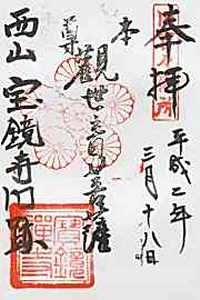 奉拝
平成二年
三月十八日
本尊
観世音菩薩
西山宝鏡寺門跡
寶鏡
禅寺